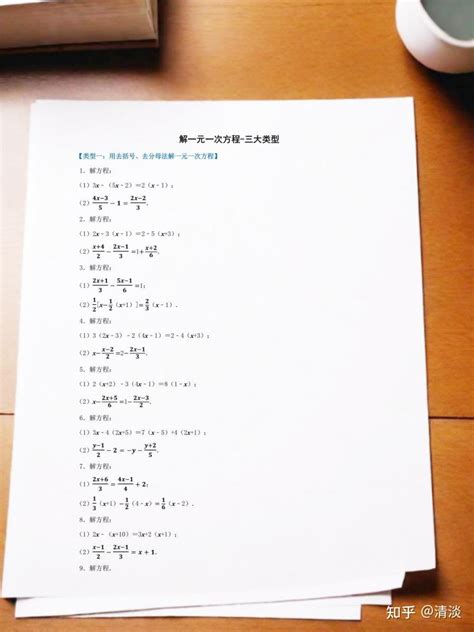 解一元一次方程-三大类型
【类型一：用去括号、去分母法解一元一次方程】
1．解方程：
（1）3x-（5x-2）＝2（x-1）；
（2）(4x-3)/5-1＝(2x-2)/3.
2．解方程：
（1）2x-3（x-1）＝2-5（x+3）；
（2）(x+4)/2-(2x-1)/3=1+(x+2)/6.
3．解方程：
（1）(2x+1)/3-(5x-1)/6=1；
（2）1/2[x-1/2（x+1）]=2/3（x-1）.
4．解方程：
（1）3（2x-3）-2（4x-1）＝2-4（x+3）；
（2）x-(x-2)/2=2-(2x-1)/3.
5．解方程：
（1）2（x+2）-3（4x-1）＝8（1-x）；
（2）x-(2x+5)/6=1-(2x-3)/2.
6．解方程：
（1）3x-4（2x+5）＝7（x-5）+4（2x+1）；
（2）(y-1)/2-2=-y-(y+2)/5.
7．解方程：
（1）(2x+6)/3=(4x-1)/4+2；
（2）1/3（x+1）-1/2（4-x）＝1/6（x-2）.
8．解方程：
（1）2x-（x+10）＝3x+2（x+1）；
（2）(x-1)/2-(2x-1)/3=x+1.
9．解方程．
知乎 @清淡